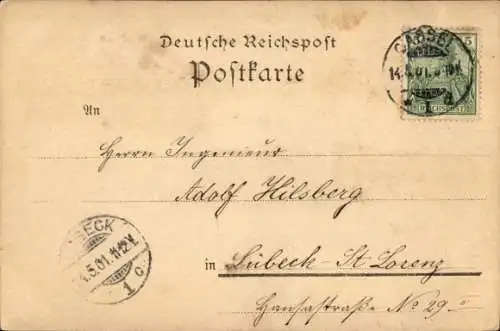 Deutsche Reichspost
Postkarte
CASSEL
14.5.01. 9-10V.
1
5
An
Herrn Ingenieur
Adolf Hilsberg
in Lübeck - St Lorenz
Hansastraße No 29
BECK
.5.01. 11-12V.
1 c